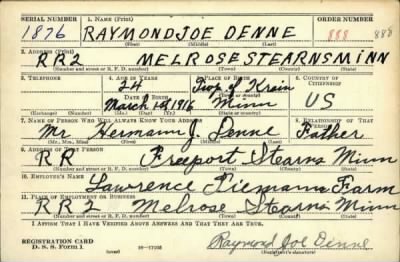 SERIAL NUMBER 1. NAME (Print) ORDER NUMBER
1876 RAYMOND JOE DENNE 888 888
(First) (Middle) (Last)
2. ADDRESS (Print)
RR2 MELROSE STEARNS MINN
(Number and street or R. F. D. number) (Town) (County) (State)
3. TELEPHONE 4. AGE IN YEARS 5. PLACE OF BIRTH 6. COUNTRY OF CITIZENSHIP
24 Twp. of Krain
DATE OF BIRTH
March 1916 Minn US
(Exchange) (No.) (Mo.) (Day) (Yr.) (State or country)
7. NAME OF PERSON WHO WILL ALWAYS KNOW YOUR ADDRESS 8. RELATIONSHIP OF THAT PERSON
Mr. Hermann J. Denne Father
(Mr., Mrs., Miss) (First) (Middle) (Last)
9. ADDRESS OF THAT PERSON
RR Freeport Stearns Minn
(Number and street or R. F. D. number) (Town) (County) (State)
10. EMPLOYER'S NAME
Lawrence Tiemann Farm
11. PLACE OF EMPLOYMENT OR BUSINESS
RR2 Melrose Stearns Minn
(Number and street or R. F. D. number) (Town) (County) (State)
I AFFIRM THAT I HAVE VERIFIED ABOVE ANSWERS AND THAT THEY ARE TRUE.
REGISTRATION CARD
D. S. S. Form 1 (over) 16-17105 Raymond Joe Denne
(Registrant's signature)